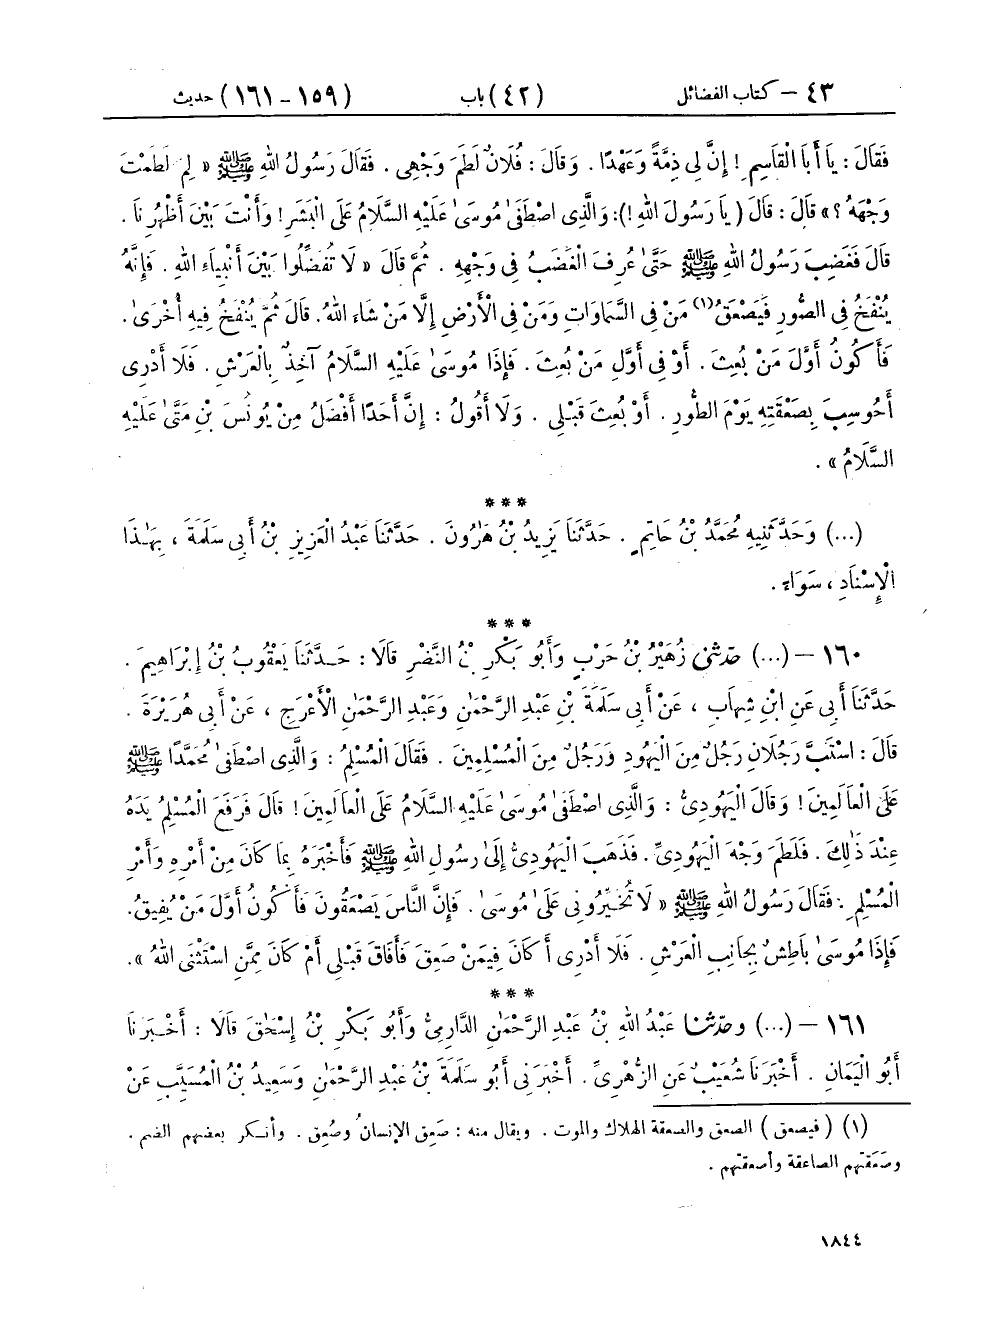 ٤٣ – كتاب الفضائل (٤٢) باب (١٥٩ – ١٦١) حديث
فَقَالَ : يَا أَبَا الْقَاسِمِ ! إِنَّ لِي ذِمَّةً وَعَهْدًا . وَقَالَ : فُلَانٌ لَطَمَ وَجْهِي . فَقَالَ رَسُولُ اللهِ ﷺ « لِمَ لَطَمْتَ
وَجْهَهُ ؟ » قَالَ : قَالَ ( يَا رَسُولَ اللهِ ! ) : وَالَّذِي اصْطَفَىٰ مُوسَىٰ عَلَيْهِ السَّلَامُ عَلَى الْبَشَرِ ! وَأَنْتَ بَيْنَ أَظْهُرِنَا .
قَالَ فَغَضِبَ رَسُولُ اللهِ ﷺ حَتَّىٰ عُرِفَ الْغَضَبُ فِي وَجْهِهِ . ثُمَّ قَالَ « لَا تُفَضِّلُوا بَيْنَ أَنْبِيَاءِ اللهِ . فَإِنَّهُ
يُنْفَخُ فِي الصُّورِ فَيَصْعَقُ(١) مَنْ فِي السَّمَاوَاتِ وَمَنْ فِي الْأَرْضِ إِلَّا مَنْ شَاءَ اللهُ . قَالَ ثُمَّ يُنْفَخُ فِيهِ أُخْرَىٰ .
فَأَكُونُ أَوَّلَ مَنْ بُعِثَ . أَوْ فِي أَوَّلِ مَنْ بُعِثَ . فَإِذَا مُوسَىٰ عَلَيْهِ السَّلَامُ آخِذٌ بِالْعَرْشِ . فَلَا أَدْرِي
أَحُوسِبَ بِصَعْقَتِهِ يَوْمَ الطُّورِ . أَوْ بُعِثَ قَبْلِي . وَلَا أَقُولُ : إِنَّ أَحَدًا أَفْضَلُ مِنْ يُونُسَ بْنِ مَتَّىٰ عَلَيْهِ
السَّلَامُ » .
***
(...) وَحَدَّثَنِيهِ مُحَمَّدُ بْنُ حَاتِمٍ . حَدَّثَنَا يَزِيدُ بْنُ هَارُونَ . حَدَّثَنَا عَبْدُ الْعَزِيزِ بْنُ أَبِي سَلَمَةَ ، بِهَٰذَا
الْإِسْنَادِ ، سَوَاءً .
***
١٦٠ – (...) حَدَّثَنِي زُهَيْرُ بْنُ حَرْبٍ وَأَبُو بَكْرِ بْنُ النَّضْرِ قَالَا : حَدَّثَنَا يَعْقُوبُ بْنُ إِبْرَاهِيمَ .
حَدَّثَنَا أَبِي عَنِ ابْنِ شِهَابٍ ، عَنْ أَبِي سَلَمَةَ بْنِ عَبْدِ الرَّحْمَٰنِ وَعَبْدِ الرَّحْمَٰنِ الْأَعْرَجِ ، عَنْ أَبِي هُرَيْرَةَ .
قَالَ : اسْتَبَّ رَجُلَانِ رَجُلٌ مِنَ الْيَهُودِ وَرَجُلٌ مِنَ الْمُسْلِمِينَ . فَقَالَ الْمُسْلِمُ : وَالَّذِي اصْطَفَىٰ مُحَمَّدًا ﷺ
عَلَى الْعَالَمِينَ ! وَقَالَ الْيَهُودِيُّ : وَالَّذِي اصْطَفَىٰ مُوسَىٰ عَلَيْهِ السَّلَامُ عَلَى الْعَالَمِينَ ! قَالَ فَرَفَعَ الْمُسْلِمُ يَدَهُ
عِنْدَ ذَٰلِكَ . فَلَطَمَ وَجْهَ الْيَهُودِيِّ . فَذَهَبَ الْيَهُودِيُّ إِلَىٰ رَسُولِ اللهِ ﷺ فَأَخْبَرَهُ بِمَا كَانَ مِنْ أَمْرِهِ وَأَمْرِ
الْمُسْلِمِ . فَقَالَ رَسُولُ اللهِ ﷺ « لَا تُخَيِّرُونِي عَلَىٰ مُوسَىٰ . فَإِنَّ النَّاسَ يَصْعَقُونَ فَأَكُونُ أَوَّلَ مَنْ يُفِيقُ .
فَإِذَا مُوسَىٰ بَاطِشٌ بِجَانِبِ الْعَرْشِ . فَلَا أَدْرِي أَكَانَ فِيمَنْ صَعِقَ فَأَفَاقَ قَبْلِي أَمْ كَانَ مِمَّنِ اسْتَثْنَى اللهُ » .
***
١٦١ – (...) وحَدَّثَنَا عَبْدُ اللهِ بْنُ عَبْدِ الرَّحْمَٰنِ الدَّارِمِيُّ وَأَبُو بَكْرِ بْنُ إِسْحَٰقَ قَالَا : أَخْبَرَنَا
أَبُو الْيَمَانِ . أَخْبَرَنَا شُعَيْبٌ عَنِ الزُّهْرِيِّ . أَخْبَرَنِي أَبُو سَلَمَةَ بْنُ عَبْدِ الرَّحْمَٰنِ وَسَعِيدُ بْنُ الْمُسَيَّبِ عَنْ
(١) ( فيصعق ) الصعق والصعقة الهلاك والموت . ويقال منه : صَعِق الإنسانُ وصُعِق . وأنكر بعضهم الضم .
وصَعَقَتهم الصاعقة وأصعقتهم .
١٨٤٤